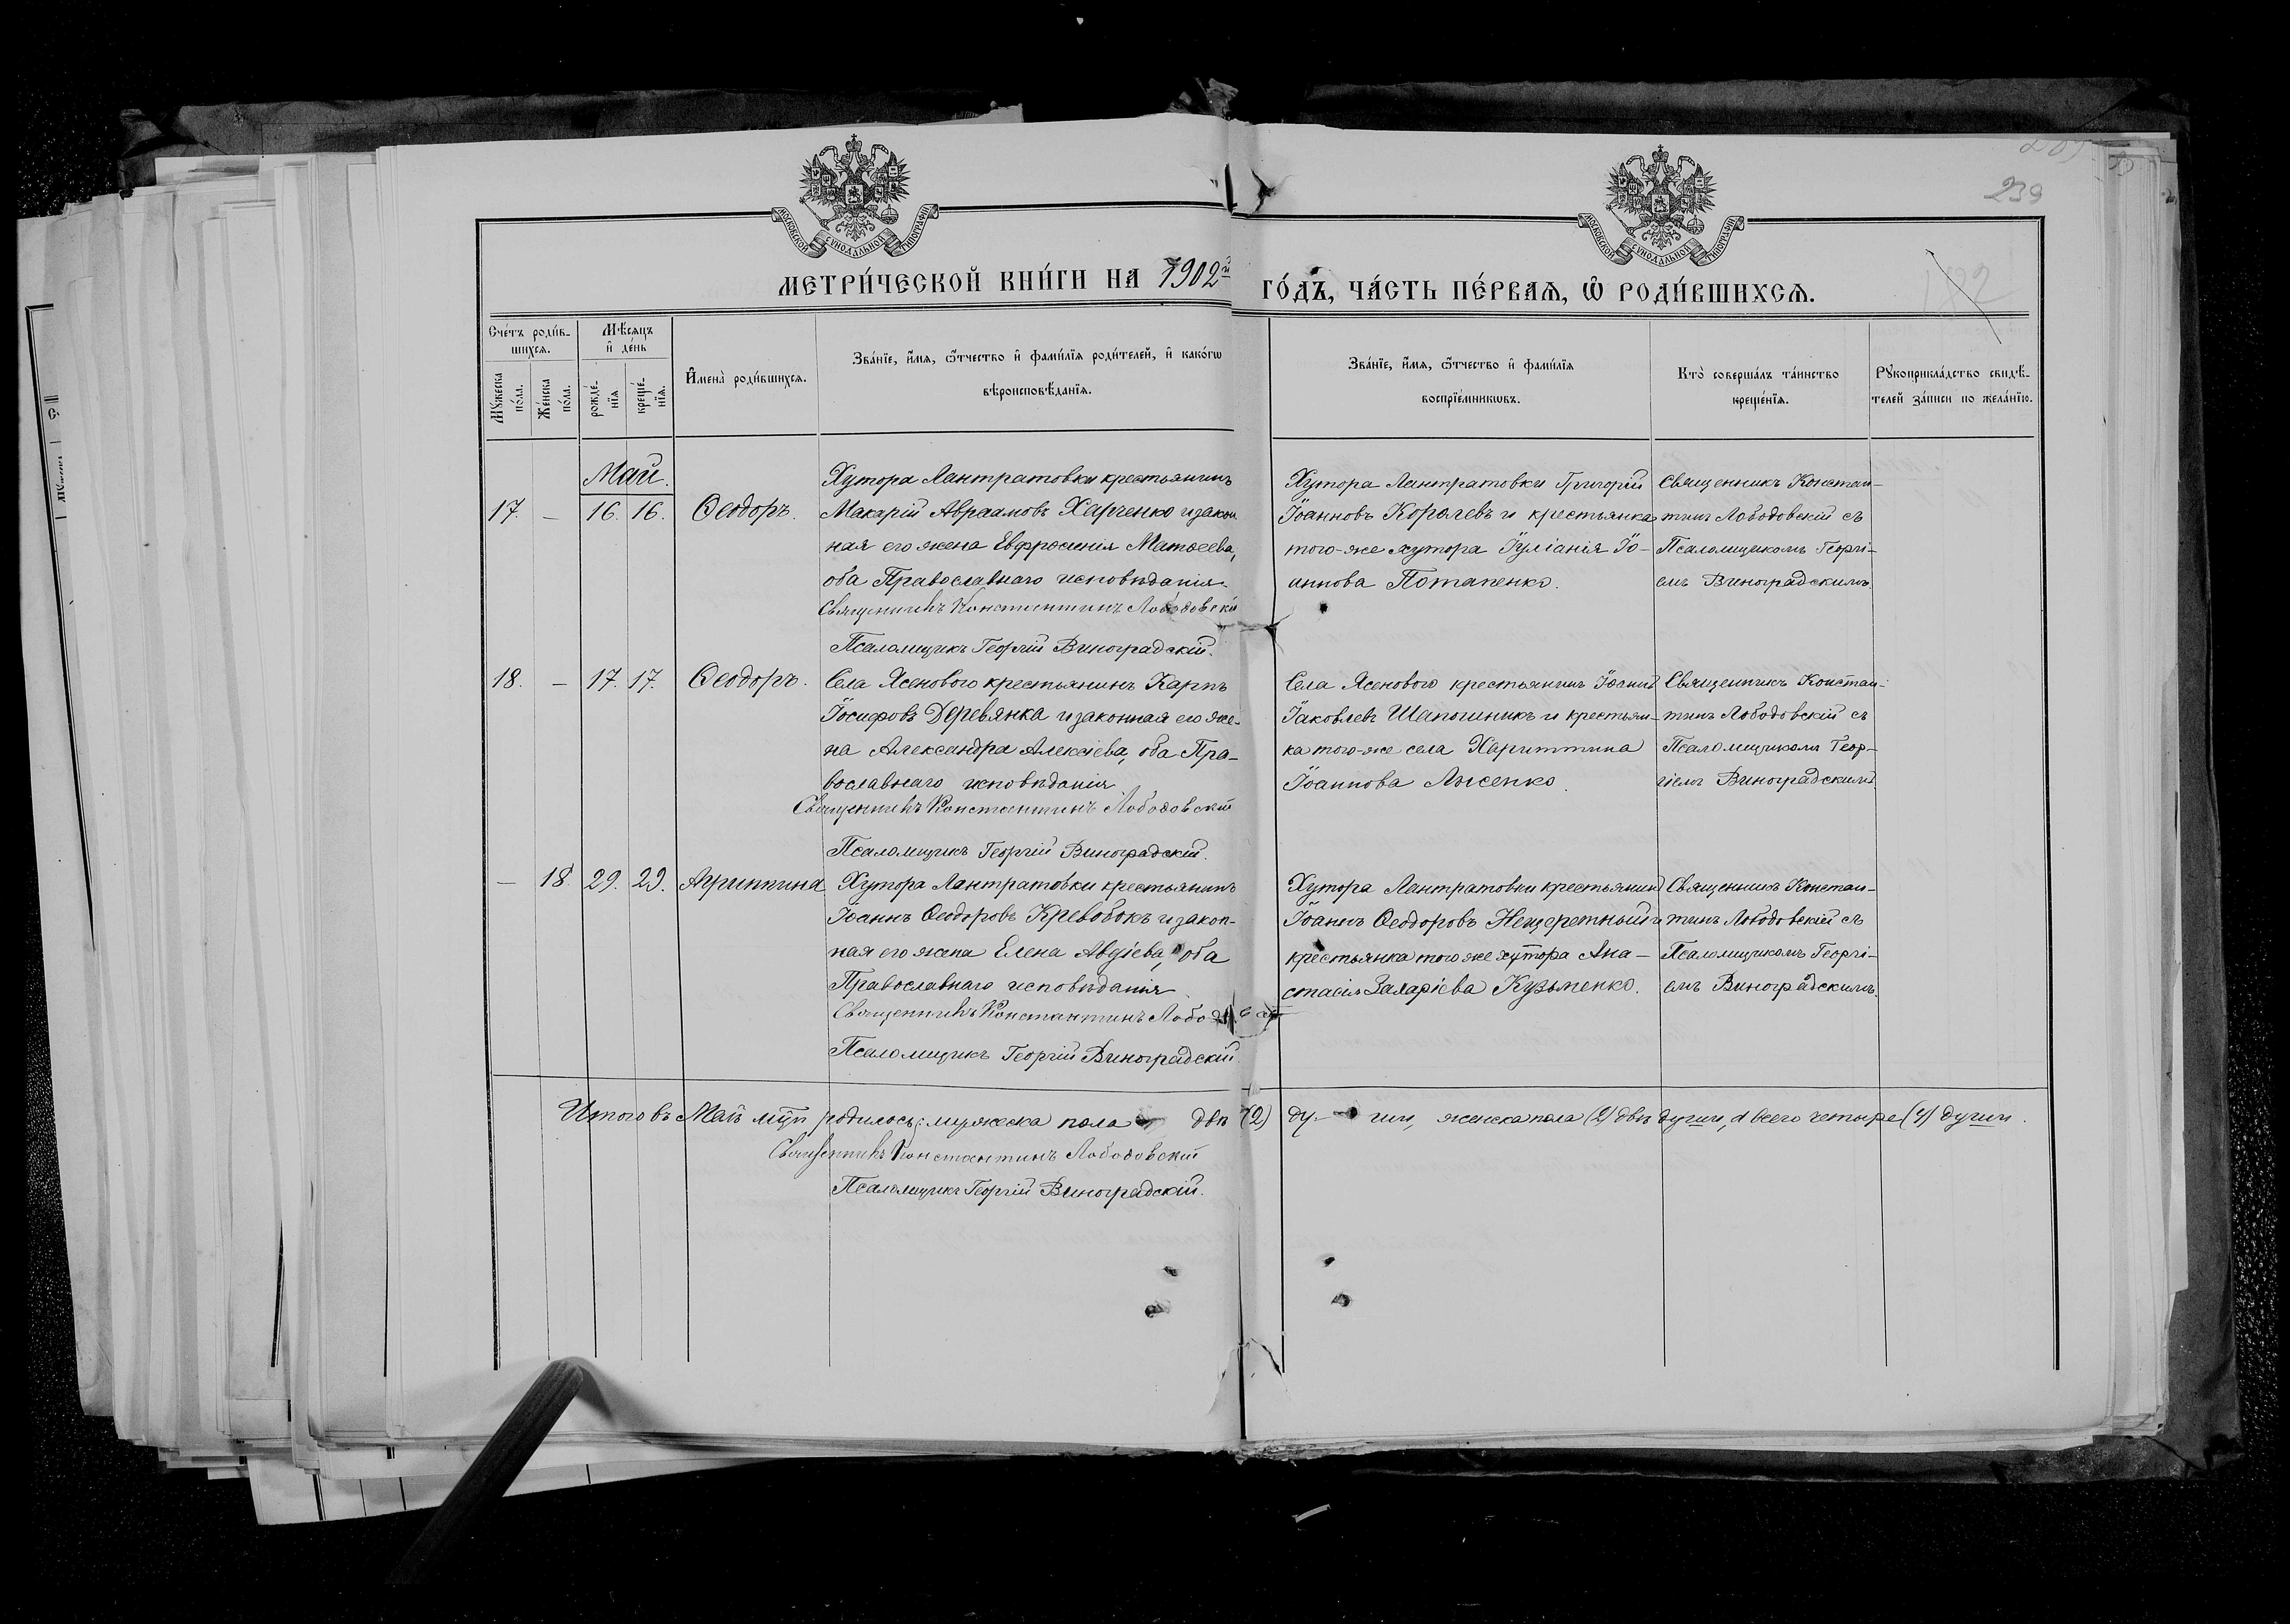 239
МОСКОВСКОЙ СѴНОДАЛЬНОЙ ТИПОГРАФІИ
МОСКОВСКОЙ СѴНОДАЛЬНОЙ ТИПОГРАФІИ
182
МЕТРИ́ЧЕСКОЙ КНИ́ГИ НА 1902й ГО́ДЪ, ЧА́СТЬ ПЕ́РВАѦ, Ѡ҆ РОДИ́ВШИХСѦ.
Сче́тъ роди́в-
шихсѧ.
Мѣ́сѧцъ
и҆ де́нь
Мꙋ́жеска
по́ла.
Же́нска
по́ла.
рожде́-
нїѧ
креще́-
нїѧ.
И҆мена̀ роди́вшихсѧ.
Зва́нїе, и҆́мѧ, ѻ҆́тчество и҆ фами́лїѧ роди́телей, и҆ како́гѡ
вѣроисповѣ́данїѧ.
Зва́нїе, и҆́мѧ, ѻ҆́тчество и҆ фами́лїѧ
воспрїе́мникѡвъ.
Кто̀ соверша́лъ та́инство
креще́нїѧ.
Рꙋкоприкла́дство свидѣ́-
телей за́писи по жела́нїю.
Май.
17. — 16. 16. Ѳеодоръ.
Хутора Лантратовки крестьянинъ
Макарій Авраамовъ Харченко и закон
ная его жена Евфросинія Матѳеева,
оба Православнаго исповѣданія.
Священникъ Константинъ Лободовскій
Псаломщикъ Георгій Виноградскій.
Хутора Лантратовки Григорій
Іоанновъ Королевъ и крестьянка
того-же хутора Іуліанія Іо-
аннова Потапенко.
Священникъ Констан-
тинъ Лободовскій съ
Псаломщикомъ Георгі-
емъ Виноградскимъ.
18. — 17. 17. Ѳеодоръ.
Села Ясенового крестьянинъ Карпъ
Іосифовъ Деревянка и законная его же-
на Александра Алексіева, оба Пра-
вославнаго исповѣданія
Священникъ Константинъ Лободовскій
Псаломщикъ Георгій Виноградскій.
Села Ясенового крестьянинъ Іоаннъ
Іаковлевъ Шапошникъ и крестьян-
ка того-же села Хариттина
Іоаннова Лысенко.
Священникъ Констан-
тинъ Лободовскій съ
Псаломщикомъ Геор-
гіемъ Виноградскимъ
— 18. 29. 29. Агриппина
Хутора Лантратовки крестьянинъ
Іоаннъ Ѳеодоровъ Кревобокъ и закон-
ная его жена Елена Авдіева, оба
Православнаго исповѣданія
Священникъ Константинъ Лободовскій
Псаломщикъ Георгій Виноградскій.
Хутора Лантратовки крестьянинъ
Іоаннъ Ѳеодоровъ Нещеретный и
крестьянка того же хутора Ана-
стасія Захаріева Кузьменко.
Священникъ Констан-
тинъ Лободовскій съ
Псаломщикомъ Георгі-
емъ Виноградскимъ.
Итого въ Маѣ м-цѣ родилось: мужеска пола двѣ (2) ду- ши, женска пола (2) двѣ души, а всего четыре (4) души.
Священникъ Константинъ Лободовскій
Псаломщикъ Георгій Виноградскій.